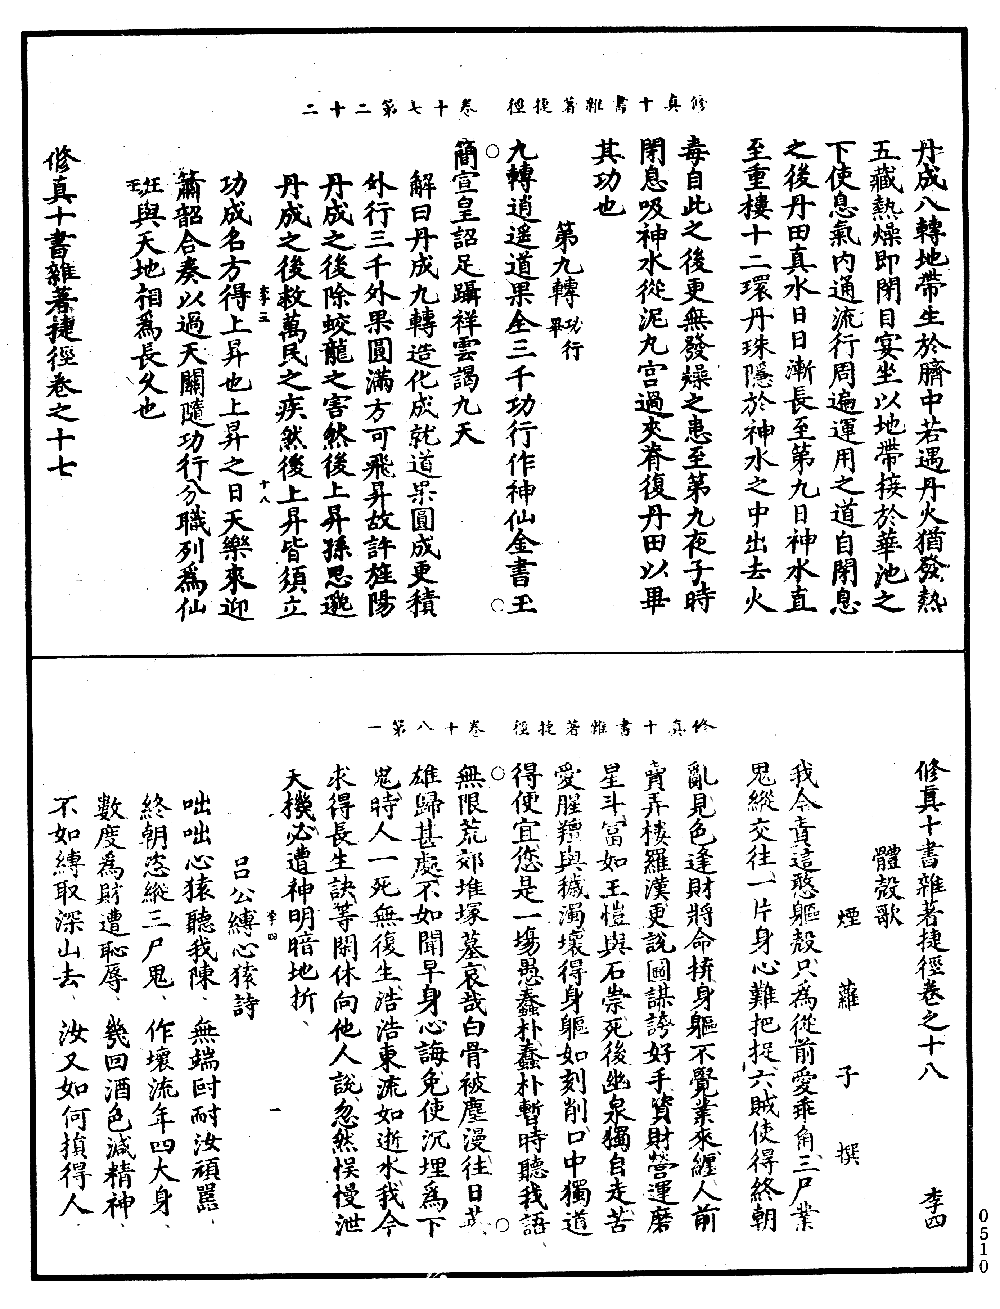 修真十書雜著捷徑　卷十七第二十二
丹成八轉地帶生於臍中若遇丹火猶發熱
五藏熱燥即閉目宴坐以地帶接於華池之
下使息氣內通流行周遍運用之道自閉息
之後丹田真水日日漸長至第九日神水直
至重樓十二環丹珠隱於神水之中出去火
毒自此之後更無發燥之患至第九夜子時
閉息吸神水從泥丸宫過夾脊復丹田以畢
其功也
第九轉功行畢
九轉逍遥道果全三千功行作神仙金書玉
簡宣皇詔足躡祥雲謁九天
解曰丹成九轉造化成就道果圓成更積
外行三千外果圓滿方可飛昇故許旌陽
丹成之後除蛟龍之害然後上昇孫思邈
丹成之後救萬民之疾然後上昇皆須立
李三　十八
功成名方得上昇也上昇之日天樂來迎
簫韶合奏以過天關隨功行分職列為仙
王與天地相為長久也
修真十書雜著捷徑卷之十七
修真十書雜著捷徑　卷十八第一
修真十書雜著捷徑卷之十八　李四
煙蘿子撰
體殼歌
我今責這憨軀殼只為從前愛乖角三尸業
鬼縱交往一片身心難把捉六賊使得終朝
亂見色逢財將命拚身軀不覺業來纏人前
賣弄樓羅漢更說圖謀誇好手資財營運磨
星斗富如王愷與石崇死後幽泉獨自走苦
愛腥羶與穢濁壞得身軀如刻削口中獨道
得便宜您是一場愚蠢朴蠢朴暫時聽我語
無限荒郊堆塚墓哀哉白骨被塵漫往日英
雄歸甚處不如聞早身心誨免使沉埋為下
鬼時人一死無復生浩浩東流如逝水我今
求得長生訣等閑休向他人說忽然悮慢泄
天機必遭神明暗地折
李四　一
呂公縛心猿詩
咄咄心猿聽我陳　無端叵耐汝頑嚚
終朝恣縱三尸鬼　作壞流年四大身
數度為財遭恥辱　幾回酒色減精神
不如縛取深山去　汝又如何損得人
0510